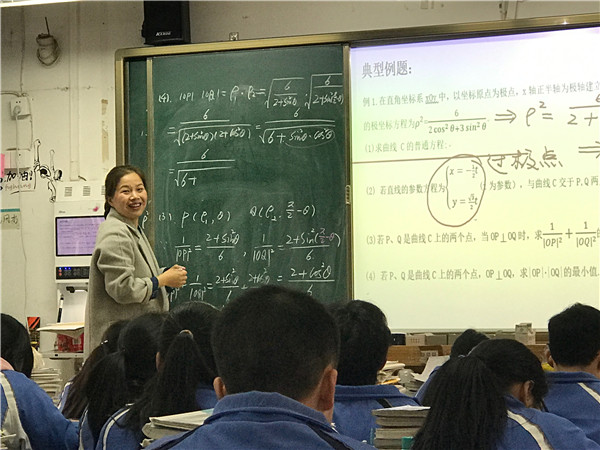 加油!
(4). |OP|·|OQ| = ρ₁·ρ₂ = √(6/(2+sin²θ)) · √(6/(2+sin²(π/2-θ)))
= 6/√((2+sin²θ)(2+cos²θ)) = 6/√(6+sin²θ·cos²θ)
= 6/√(6+
(3) P(ρ₁,θ) Q(ρ₂,π/2-θ)
1/|OP|² = (2+sin²θ)/6, 1/|OQ|² = (2+sin²(π/2-θ))/6
1/|OP|² + 1/|OQ|² = (2+sin²θ)/6 + (2+cos²θ)/6 = (2+cos²θ)/6
典型例题:
例 1. 在直角坐标系 xOy 中, 以坐标原点为极点, x 轴正半轴为极轴建立
的极坐标方程为ρ²= 6/(2cos²θ+3sin²θ) ⇒ ρ² = 6/(2+
(1)求曲线 C 的普通方程;
过极点 ⇒
(2) 若直线的参数方程为{x=-½t y=√3/2 t (t 为参数), 与曲线 C 交于 P,Q 两
(3)若 P、Q 是曲线 C 上的两个点, 当 OP⊥OQ 时, 求 1/|OP|² + 1/|OQ|² 的
(4) 若 P、Q 是曲线 C 上的两个点, OP⊥OQ, 求|OP|·|OQ|的最小值